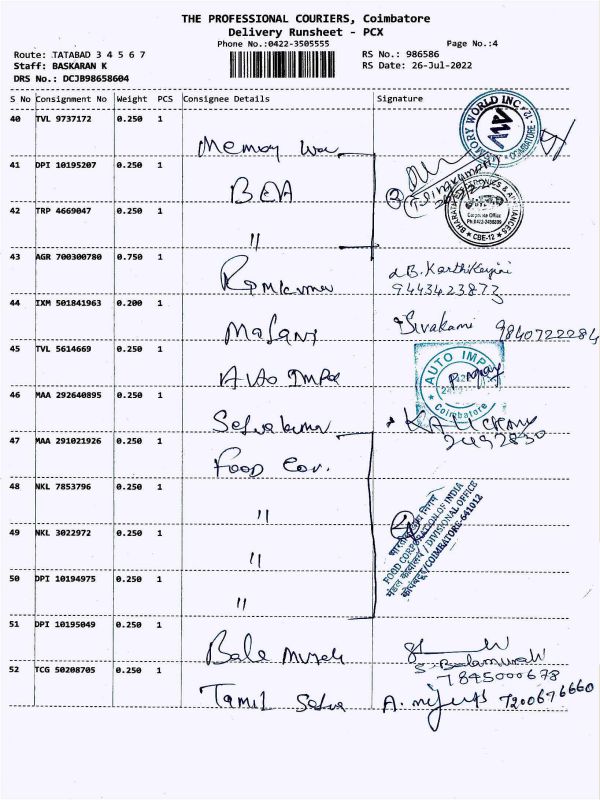 THE PROFESSIONAL COURIERS, Coimbatore
Delivery Runsheet - PCX
Phone No.:0422-3505555
Page No.:4
Route: TATABAD 3 4 5 6 7
RS No.: 986586
Staff: BASKARAN K
RS Date: 26-Jul-2022
DRS No.: DCJB98658604
S No Consignment No Weight PCS Consignee Details Signature
40 TVL 9737172 0.250 1
MEMORY WORLD INC
COIMBATORE - 12
Memory
41 DPI 10195207 0.250 1
BEA
42 TRP 4669047 0.250 1
Corporate Office
CBE-12
"
43 AGR 700300780 0.750 1
B. Karthikeyini
9443423873
44 IXM 501841963 0.200 1
Sivakami 9840722284
45 TVL 5614669 0.250 1
AUTO IMP
Coimbatore
Auto Impex
46 MAA 292640895 0.250 1
Selvakumar
47 MAA 291021926 0.250 1
2492850
Food Cor.
48 NKL 7853796 0.250 1
"
भारतीय खाद्य निगम
FOOD CORPORATION OF INDIA
मंडल कार्यालय / DIVISIONAL OFFICE
कोयंबटूर/COIMBATORE-641012
49 NKL 3022972 0.250 1
"
50 DPI 10194975 0.250 1
"
51 DPI 10195049 0.250 1
Bala
S. Balamurali
7845000678
52 TCG 50208705 0.250 1
Tamil Selva
7200676660